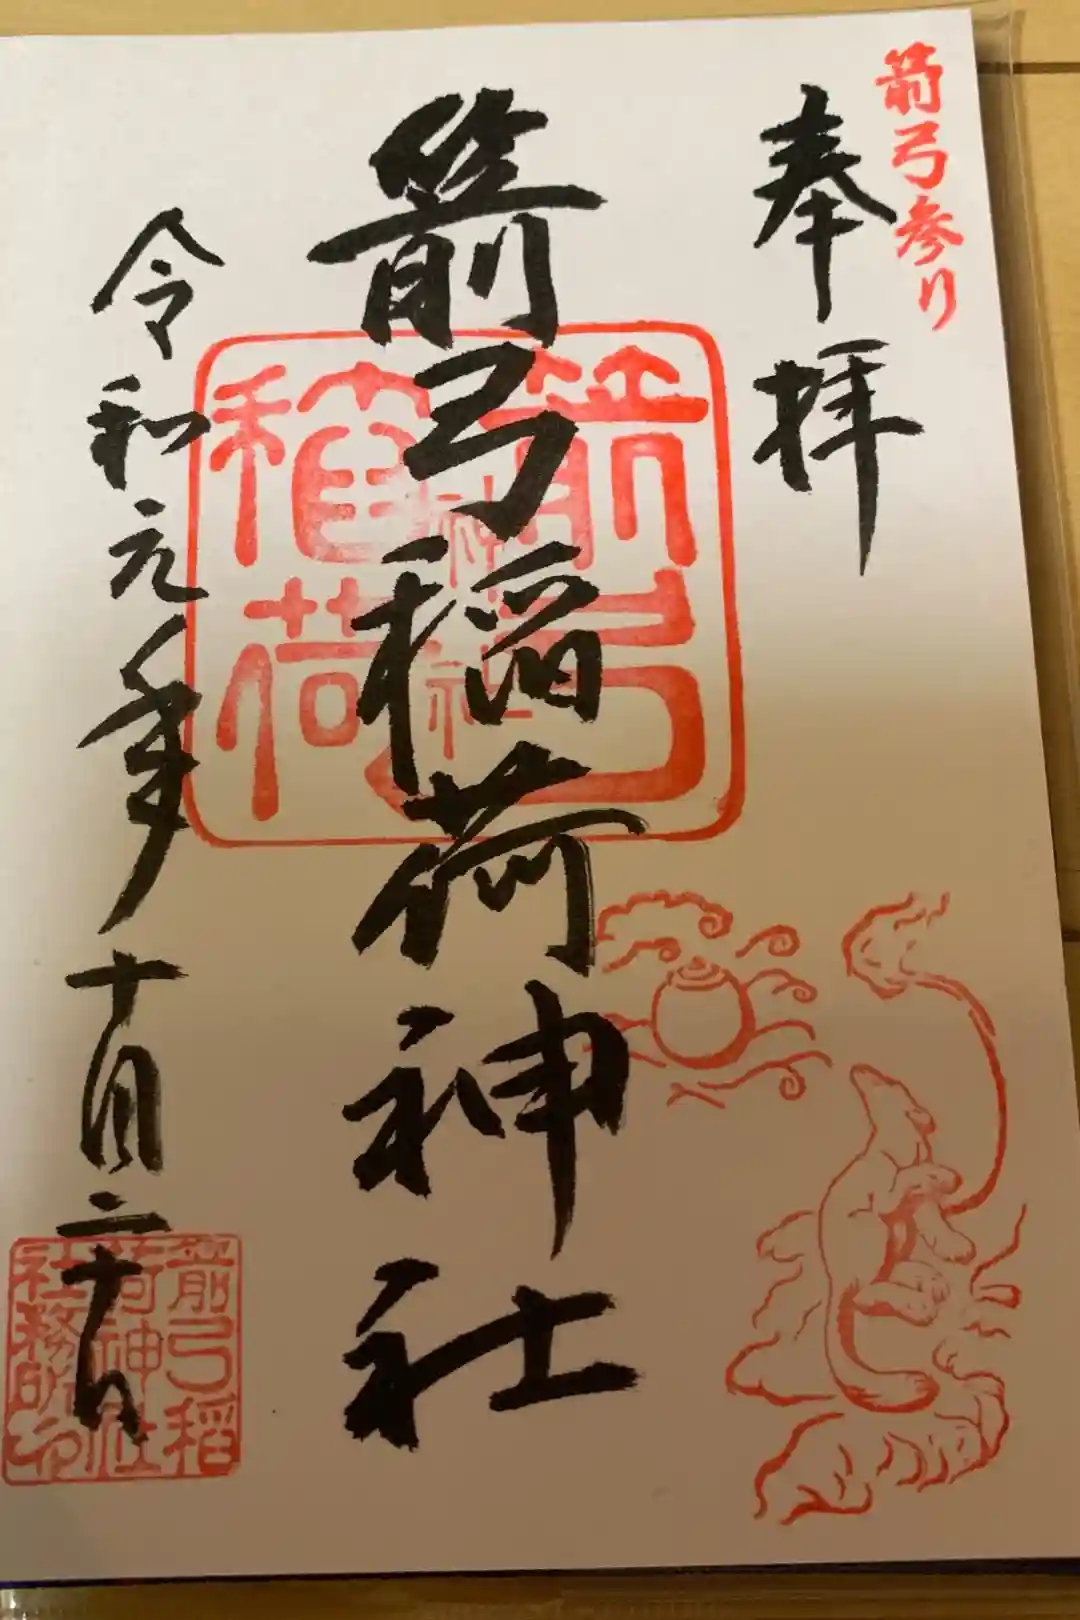 箭弓参り
奉拝
箭弓稲荷神社
箭弓
稲荷
神社
令和元年十月二十日
箭弓稲
荷神社
社務所印